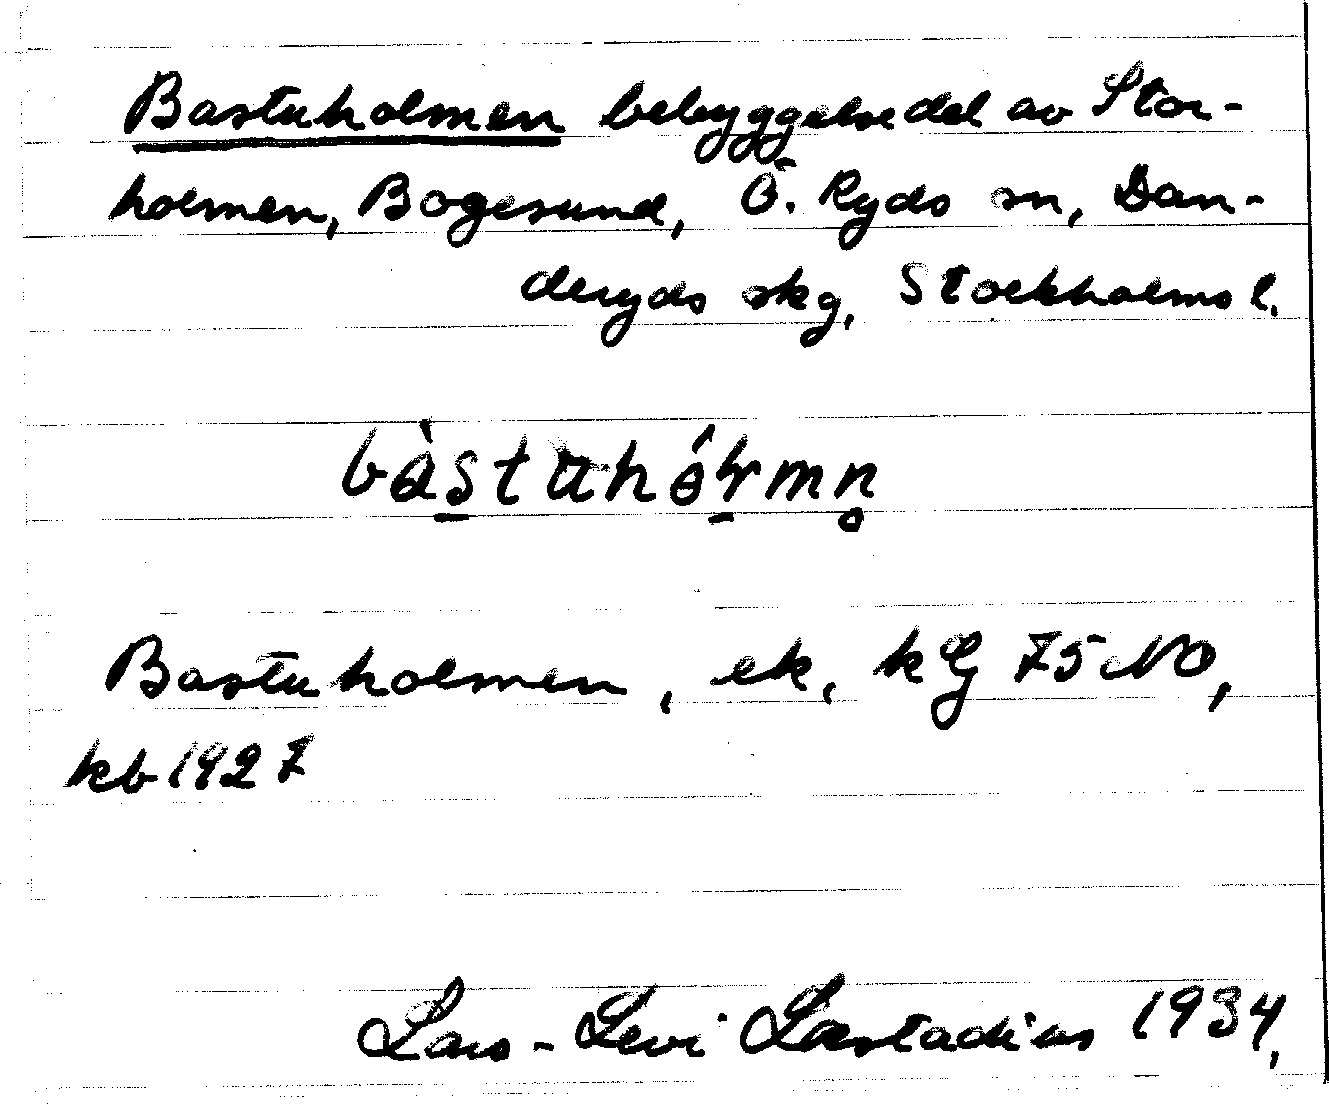 Bastuholmen bebyggelsedel av Stor-
holmen, Bogesund, Ö. Ryds sn, Dan-
deryds skg, Stockholms l.
Bastuholmen, ek, kG 75 NO,
kb 1927
Lars-Levi Læstadius 1934,